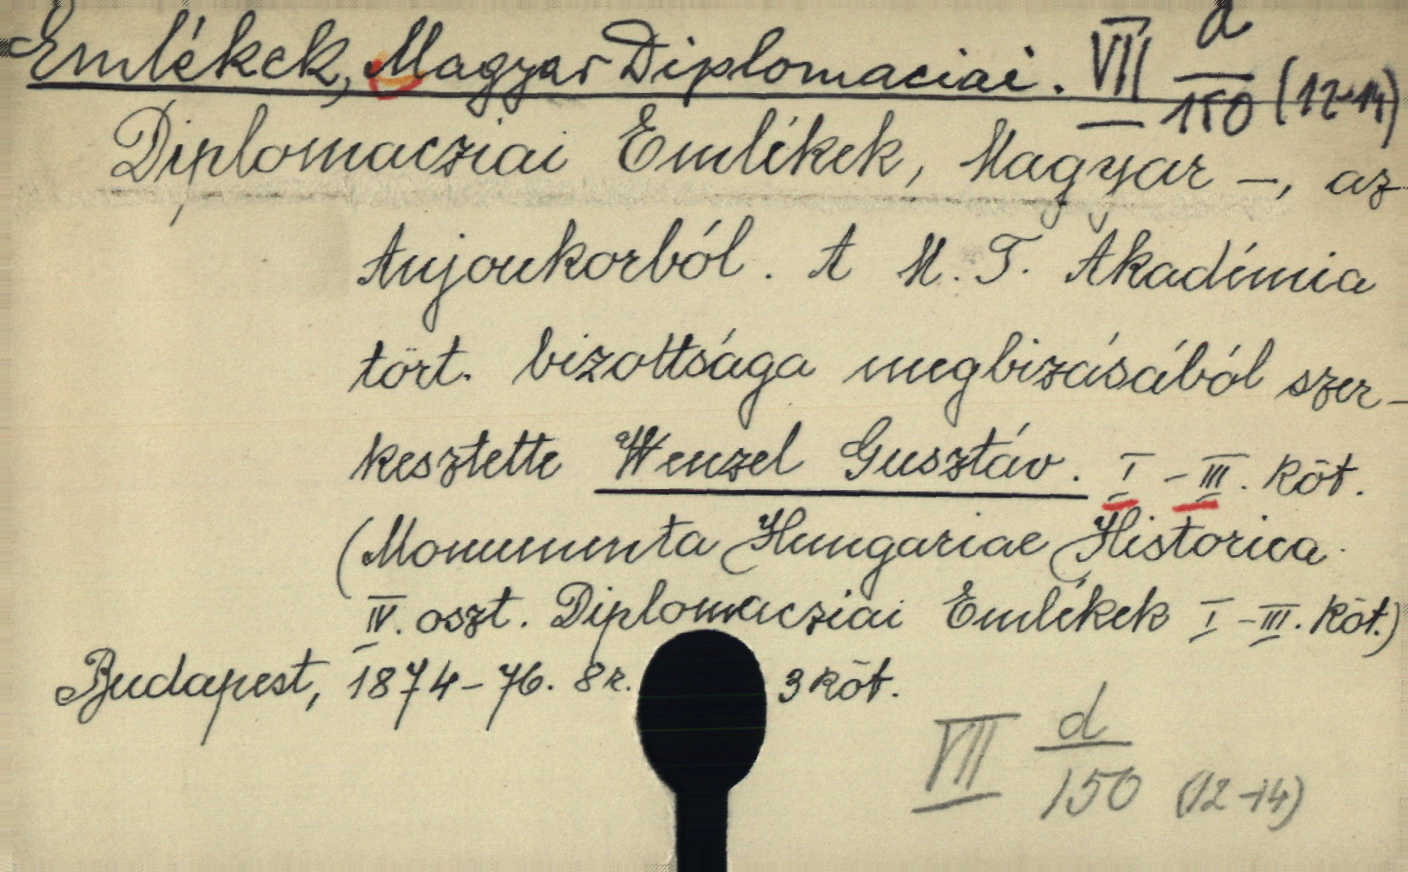 Emlékek, Magyar Diplomaciai. VII d/150 (12-14)
Diplomacziai Emlékek, Magyar –, az
Anjoukorból. A M. T. Akadémia
tört. bizottsága megbizásából szer-
kesztette Wenzel Gusztáv. I – III. köt.
(Monumenta Hungariae Historica
IV. oszt. Diplomacziai Emlékek I – III. köt.)
Budapest, 1874 – 76. 8r. 3 köt.
VII d/150 (12-14)